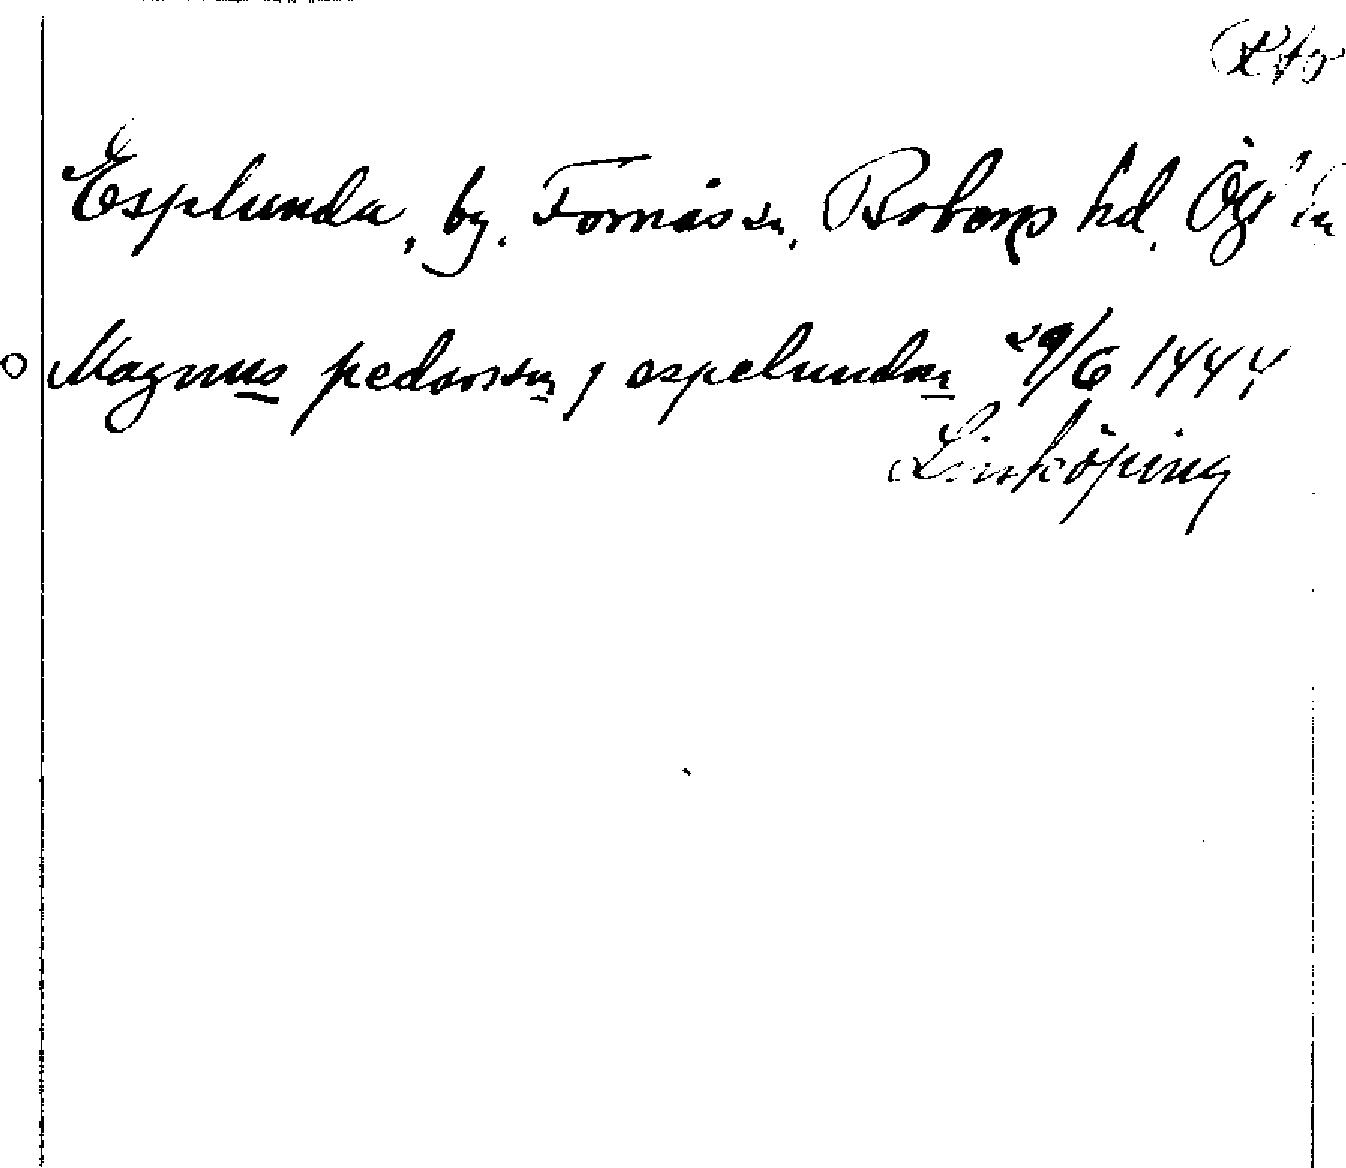 Esplunda, by. Fornåsa sn, Bobergs hd. Ög
Magnus pedersson j espelundom 29/6 1444
Linköping